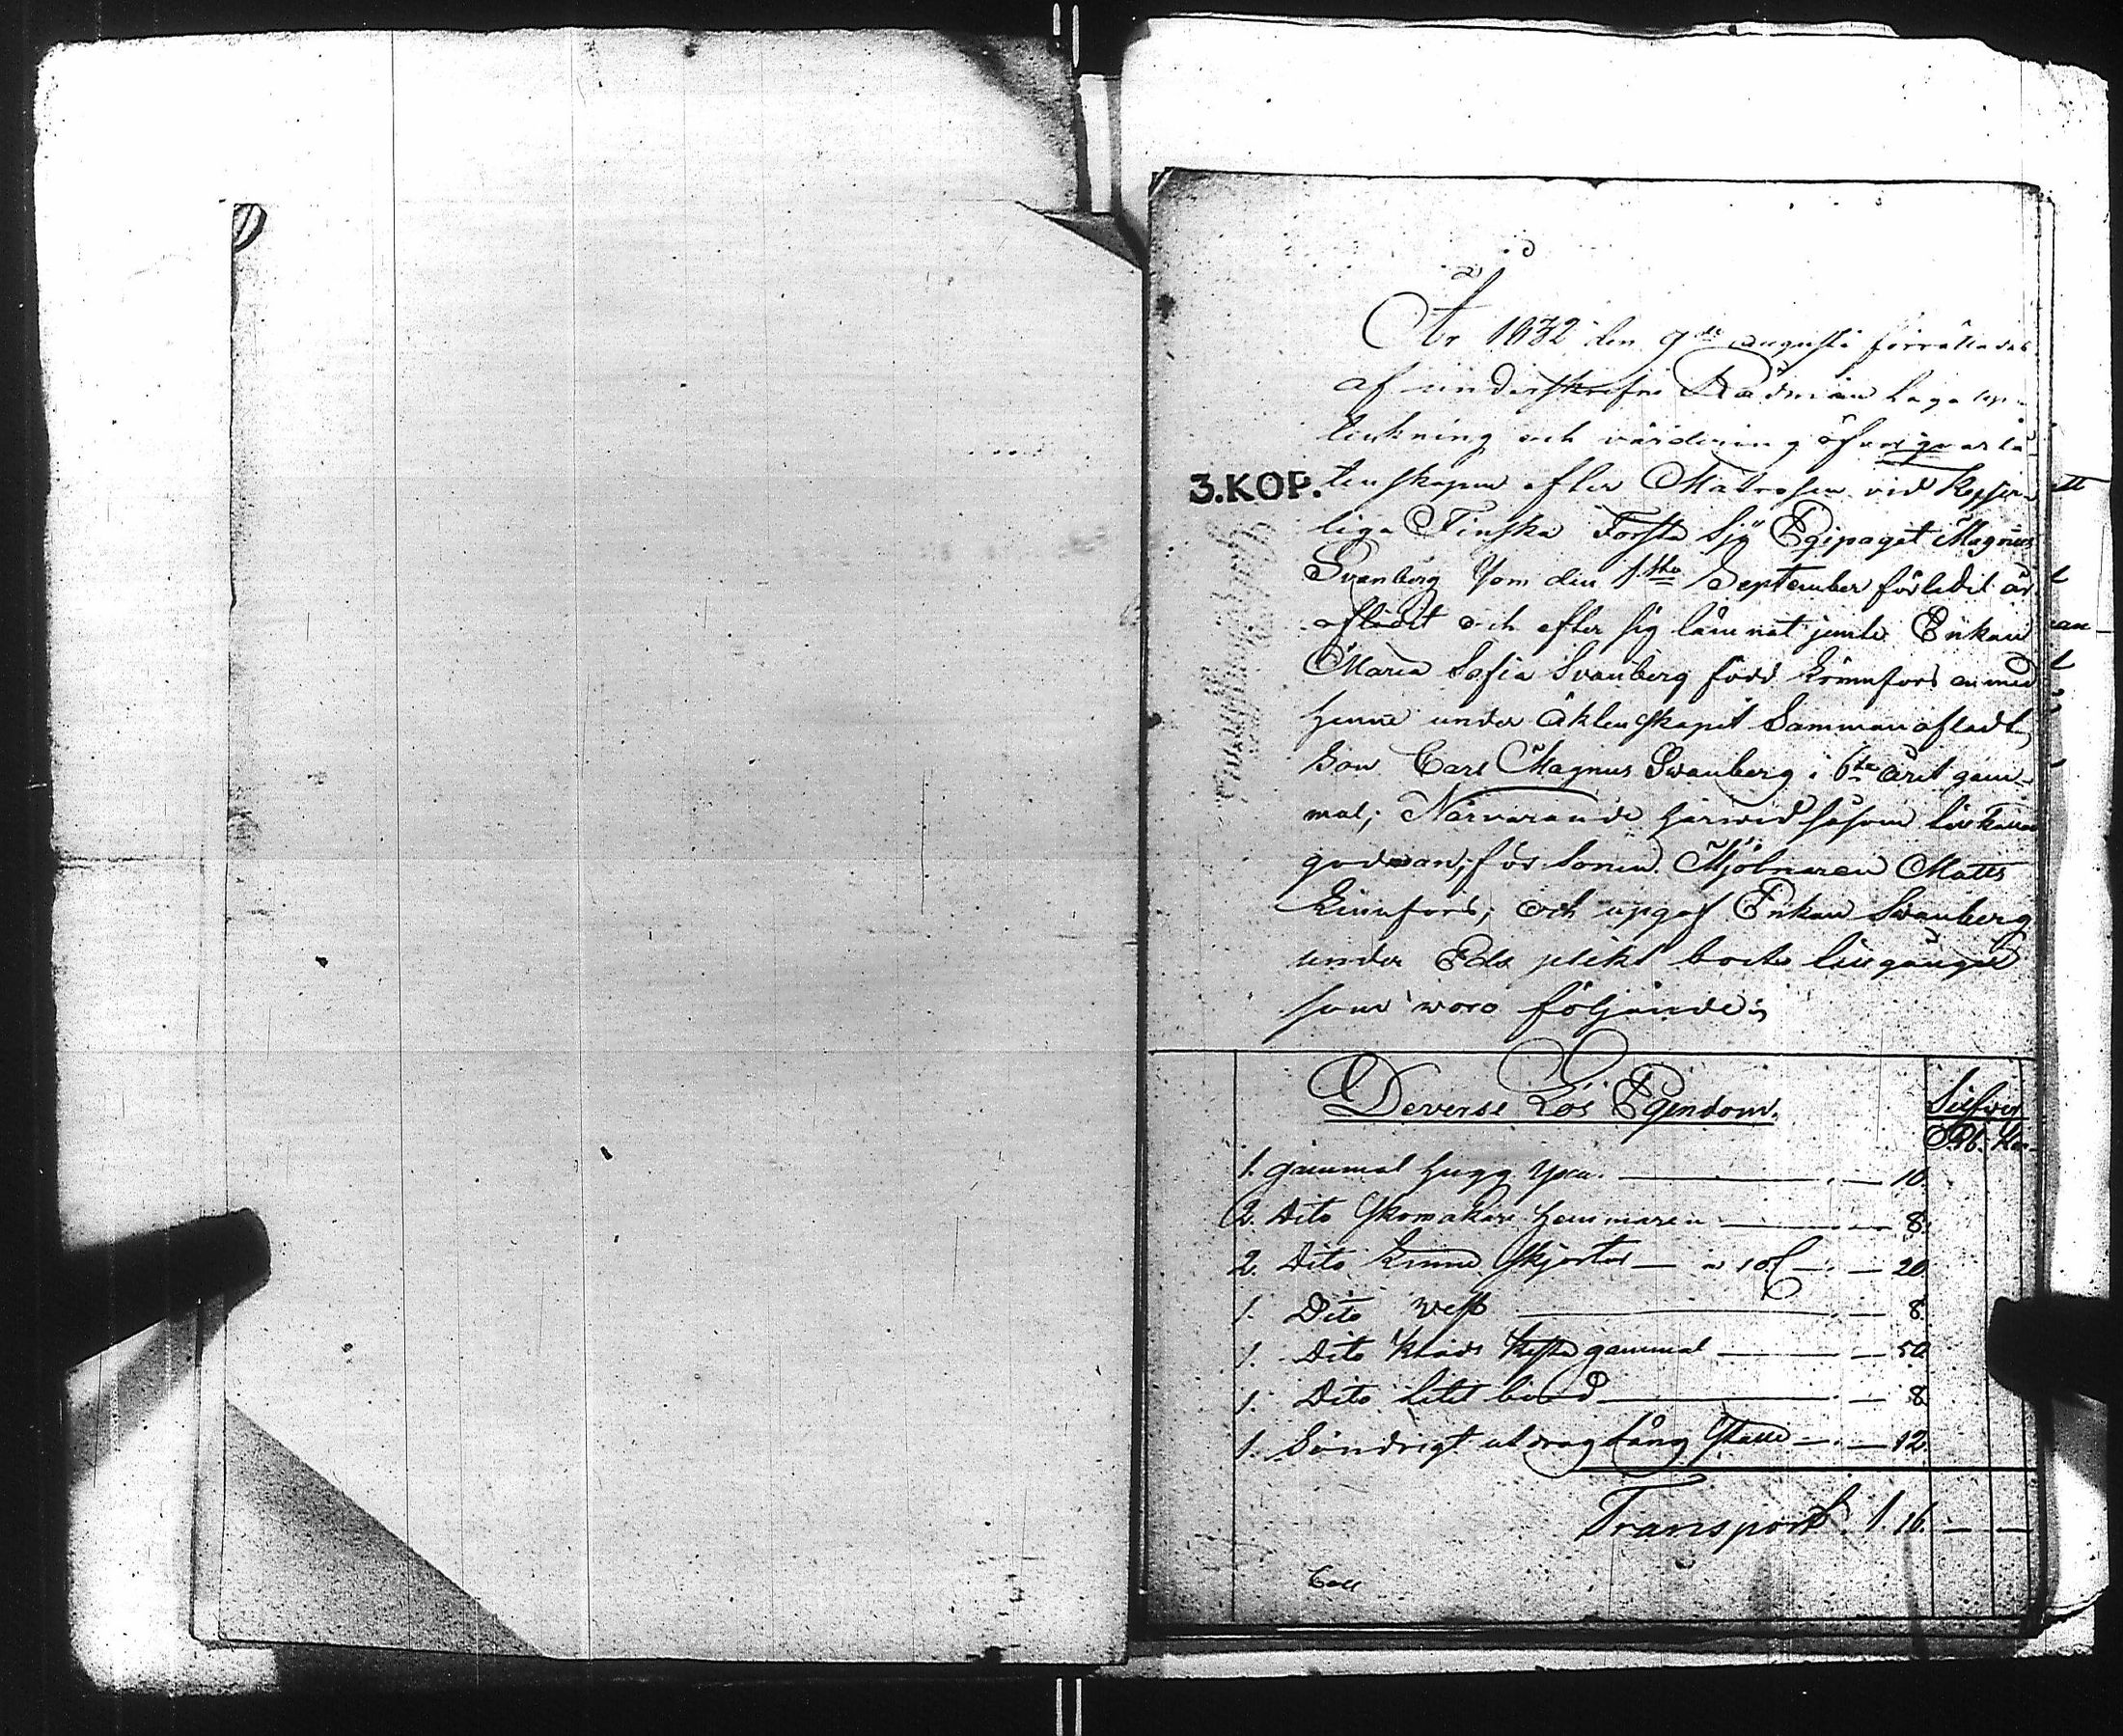 År 1832 den 9de augusti förrättades
af underskrefne Rådman laga up-
teckning och värdering öfver qvarlå-
3.KOP.
tenskapen efter Matrosen vid Kejser-
liga Finska Första Sjö Eqipaget Magnus
Svanberg som den 1ste September förledit år
aflidit och efter sig lämnat jemte Enkan
Maria Sofia Svanberg född Linnfors en med
henne under äktenskapet Sammanaflad
Son Carl Magnus Svanberg i 6te året gam-
mal; Närvarande härvid såsom
godman för Sonen Mjölnaren Matts
Linnfors; och upgaf Enkan Svanberg
under Eds plikt boets tillgångar
som voro följande;
Deverse Lös Egendom.
Silfver
Rb. Ko.
1. gammal hugg yxa. — 10.
2. Dito Skomakare hammaren — 8.
2. Dito Linne Skjortor — a 10 — 20
1. Dito vest — 8.
1. Dito Kläds Kista gammal — 50
1. Dito litet bord — 8.
1. Söndrigt utdrag Säng Ställe — 12.
Transport. 1. 16. — —